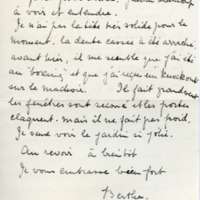 à voir et entendre.
Je n'ai pas la tête très solide pour le
moment, la dent cassée a été arrachée
avant hier, il me semble que j'ai été
au "boxing" et que j'ai reçu un knockout
sur la machoir. Il fait grand vent
les fenêtres sont secoué et les portes
claquent. mais il ne fait pas froid.
Je veux voir le jardin si joli.
Au revoir à bientôt
Je vous embrasse bien fort
Berthe.